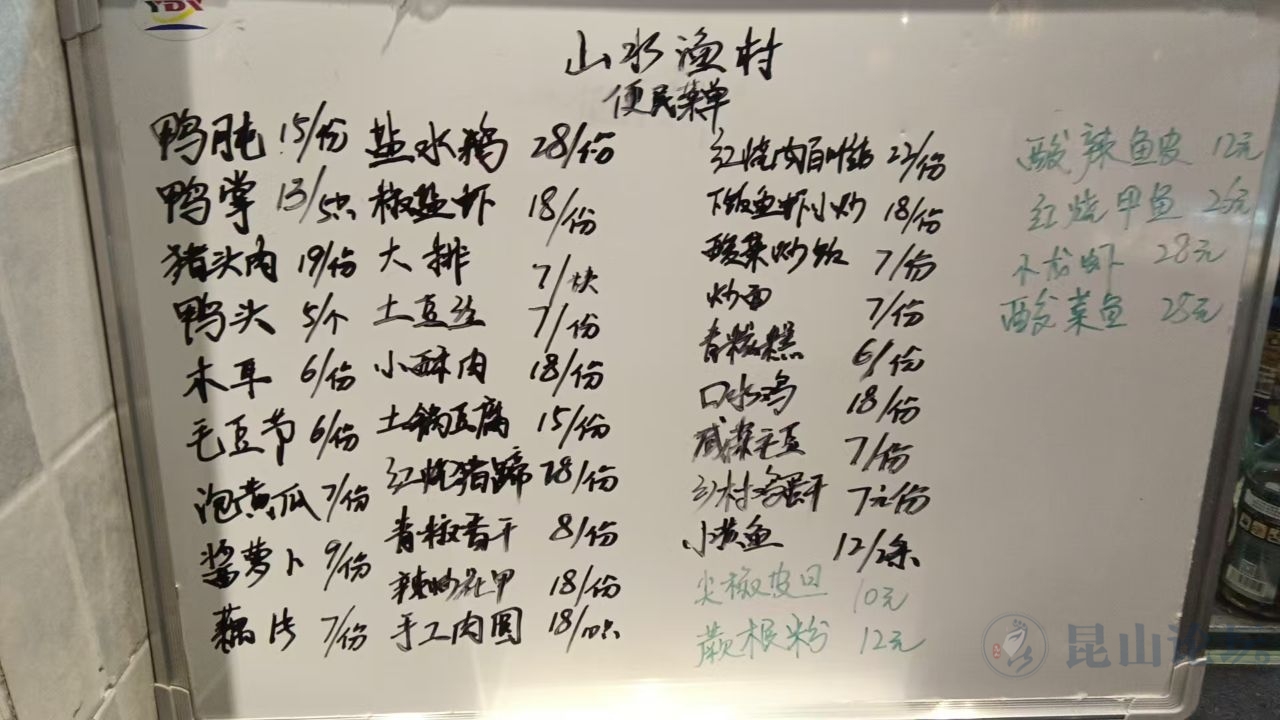 YBV
山水渔村
便民菜单
鸭肫 15/份
鸭掌 13/5只
猪头肉 19/份
鸭头 5/个
木耳 6/份
毛豆节 6/份
泡黄瓜 7/份
酱萝卜 9/份
藕片 7/份
盐水鹅 28/份
椒盐虾 18/份
大排 7/块
土豆丝 7/份
小酥肉 18/份
土锅豆腐 15/份
红烧猪蹄 28/份
青椒香干 8/份
辣炒花甲 18/份
手工肉圆 18/四只
红烧肉百叶结 23/份
下饭鱼虾小炒 18/份
酸菜炒饭 7/份
炒面 7/份
青椒糕 6/份
口水鸡 18/份
咸菜毛豆 7/份
乡村 蛋干 7元/份
小黄鱼 12/2条
尖椒皮旦 10元
蕨根粉 12元
酸辣鱼皮 12元
红烧甲鱼 26元
小龙虾 28元
酸菜鱼 25元
昆山论坛